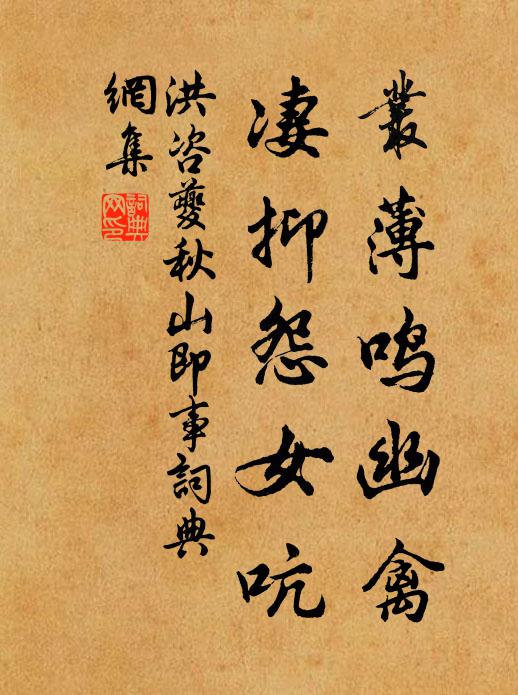 叢薄鳴幽禽
凄抑怨女吭
洪咨夔秋山即事詞典
網集
詞典网印